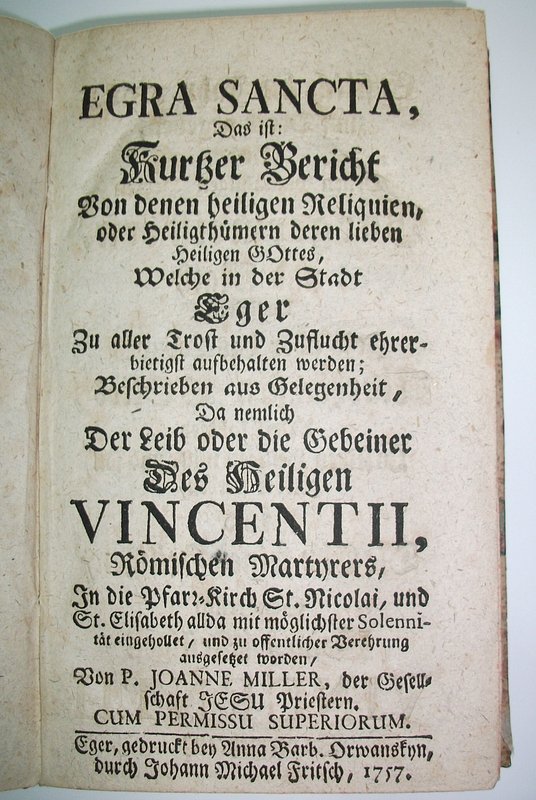 EGRA SANCTA,
Das ist:
Kurtzer Bericht
Von denen heiligen Reliquien,
oder Heiligthümern deren lieben
Heiligen GOttes,
Welche in der Stadt
Eger
Zu aller Trost und Zuflucht ehrer-
bietigst aufbehalten werden;
Beschrieben aus Gelegenheit,
Da nemlich
Der Leib oder die Gebeiner
Des Heiligen
VINCENTII,
Römischen Martyrers,
In die Pfarr-Kirch St. Nicolai, und
St. Elisabeth allda mit möglichster Solenni-
tät eingehollet / und zu offentlicher Verehrung
ausgesetzet worden /
Von P. JOANNE MILLER, der Gesell-
schaft JESU Priestern.
CUM PERMISSU SUPERIORUM.
Eger, gedruckt bey Anna Barb. Orwanskyn,
durch Johann Michael Fritsch, 1757.